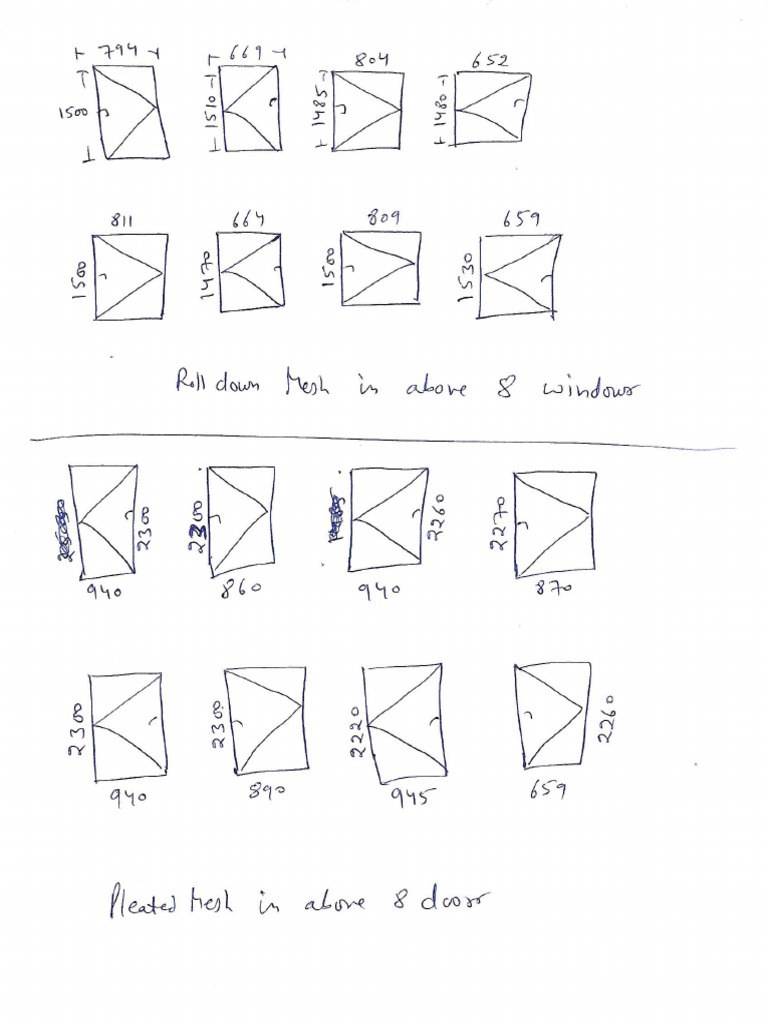 794 669 804 652
1500 1510 1485 1480
811 664 809 659
1500 1470 1500 1530
Roll down Mesh in above 8 windows
2300 2300 2260 2270
940 860 940 870
2300 2300 2220 2260
940 890 945 659
Pleated Mesh in above 8 doors